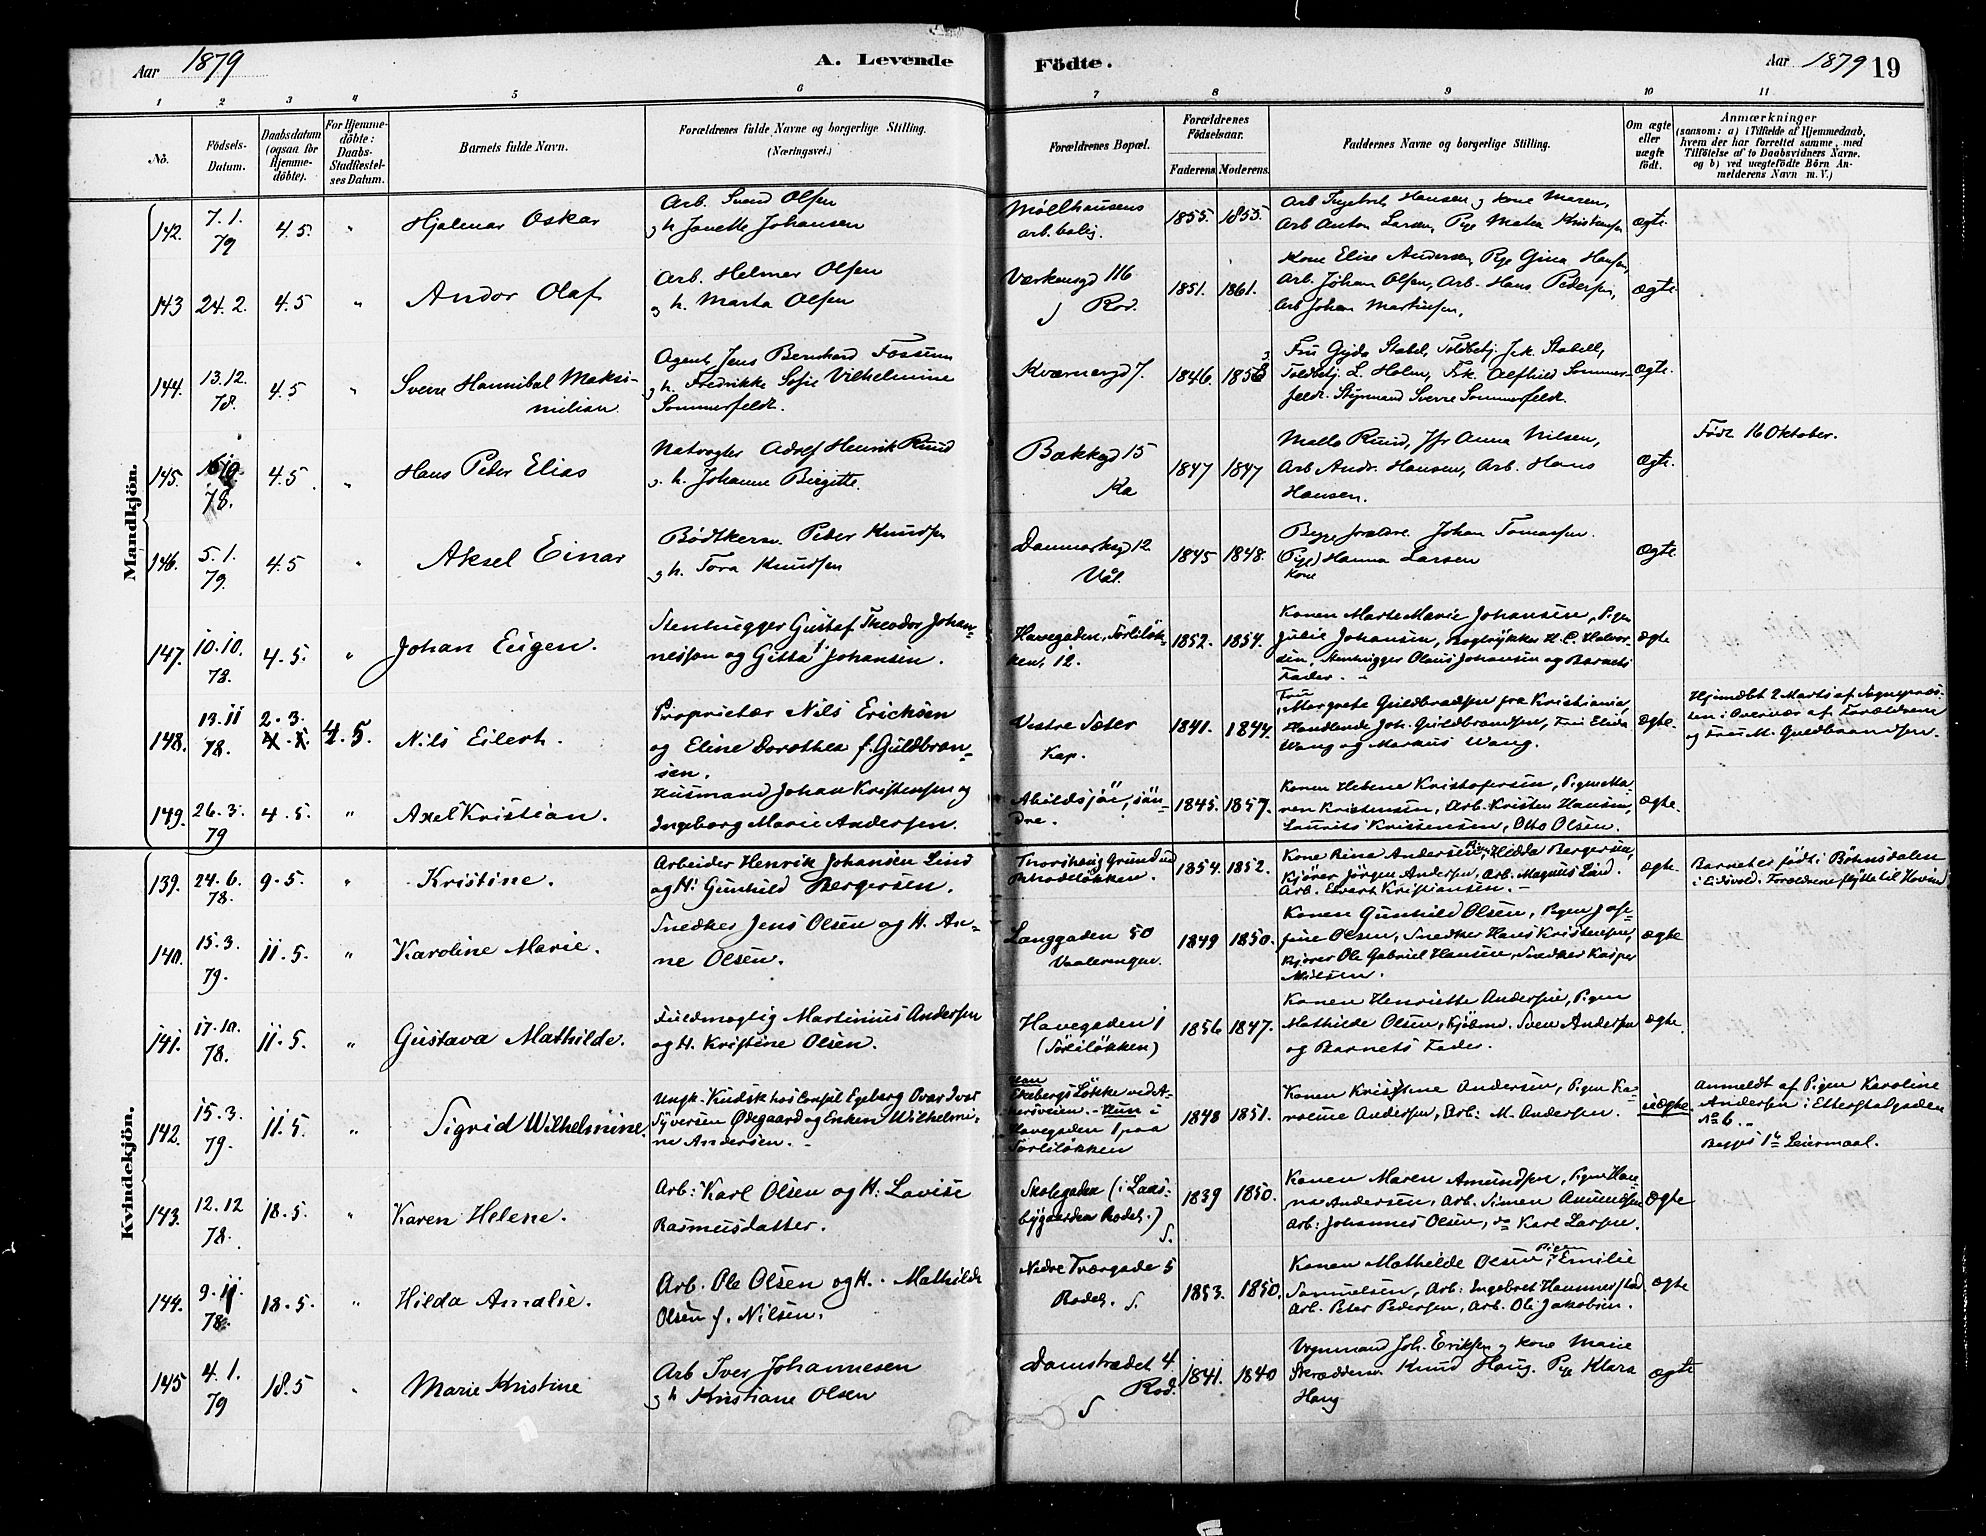 Aar 1879
A. Levende Födte.
Aar 1879 19
1 2 3 4 5 6 7 8 9 10 11
No.
Födsels-Datum.
Daabsdatum (ogsaa for Hjemmedöbte).
For Hjemmedöbte: Daabs-Stadfæstelses Datum.
Barnets fulde Navn.
Forældrenes fulde Navne og borgerlige Stilling. (Næringsvei.)
Forældrenes Bopæl.
Forældrenes Födselsaar.
Faderens. Moderens.
Faddernes Navne og borgerlige Stilling.
Om ægte eller uægte født.
Anmærkninger
(saasom: a) i Tilfælde af Hjemmedaab, hvem der har forrettet samme, med Tilföielse af to Daabsvidners Navne. og b) ved uægtefödte Börn Anmelderens Navn m. V.)
Mandkjön.
142. 7.1. 79 4.5. " Hjalmar Oskar
Arb. Svend Olsen
og h. Janette Johansen
Möllhausens arb.bolig. 1855. 1855.
Arb Ingebret Hansen og Kone Maren,
Arb Anton Larsen, Pige Matea Kristiansen
ægte.
143 24.2. 4.5 " Andor Olaf
Arb. Helmer Olsen
og h. Marta Olsen
Værkensgd 116
Rod. 1851. 1861.
Kone Elise Andersen, Pge Gina Hansen,
Arb. Johan Olsen, Arb. Hans Pedersen,
Arb Johan Martinsen,
ægte.
144. 13.12. 78. 4.5 " Sverre Hannibal Maksimilian
Agent Jens Bernhard Fossum
og h. Fredrikke Sofie Vilhelmine
Sommerfeldt.
Kværnergd 7. 1846. 1853
Fru Gyda Stabel, Toldbetj. Fr. Stabell,
Toldbetj. L. Holm, Frk. Alfhild Sommerfeldt. Styrmand Sverre Sommerfeldt.
ægte.
145. 78. 4.5. " Hans Peder Elias
Natvagter Adolf Henrik Ruud
og h. Johanne Birgitte.
Bakkegd 15
Ka 1847 1847
Malla Ruud, Jfr Anna Nilsen,
Arb Andr. Hansen, Arb. Hans
Hansen.
ægte. Födt 16 Oktober.
146. 5.1. 79. 4.5 " Aksel Einar
Bödtkersv. Peder Knudsen
og h. Tora Knudsen
Danmarksgd 12
Vål. 1845 1848.
Begge forældre. Johan Tomassen.
(Pige) Hanna Larsen
Kone
ægte.
147. 10.10. 78. 4.5. " Johan Eugen.
Stenhugger Gustaf Theodor Johannessen og Gitta Johansen.
Havegaden, Törtilökken, 12. 1852. 1854.
Konen Marte Marie Johansen, Pigen
Julie Johansen, Bogtrykker H. C. Halvorsen, Stenhugger Olaus Johansen og Barnets
Fader.
ægte
148. 13.11 78. 2.3. 4.5. Nils Eilert.
Proprietær Nils Erichsen
og Eline Dorothea f. Guldbransen.
Vestre Sæter
Kap. 1841. 1844.
Fru Margrete Guldbrandsen fra Kristiania,
Handlende Joh. Guldbrandsen, Fru Elida
Wang og Markus Wang.
ægte.
Hjemdöbt 2 Marts af Sognepræsten i Overvær af Forældrene
og Fru M. Guldbrandsen.
149. 26.3. 79 4.5. " Axel Kristian.
Husmand Johan Kristensen og
Ingeborg Marie Andersen.
Abildsjöe, söndre. 1845. 1857.
Konen Helene Kristofersen, Pigen Maren Kristensen, Arb. Kristen Hansen,
Laurits Kristensen, Otto Olsen.
ægte.
Kvindekjön.
139. 24.6. 78. 9.5. " Kristine.
Arbeider Henrik Johansen Lind
og H: Gunhild Bergersen.
Thorshaug Grundud
Rhodelökken. 1854. 1852.
Kone Rina Andersen, Pigen Hedda Bergersen,
Kjörer Jörgen Andersen, Arb. Magnus Lind.
Arb. Edvart Kristiansen.
ægte
Barnet er födt i Böhnsdalen
i Eidsvold. Forældrene flytte til Hovind
140. 15.3. 79. 11.5. " Karoline Marie.
Snedker Jens Olsen og H. Anne Olsen.
Langgaden 50
Vaalerengen. 1849 1850.
Konen Gunhild Olsen, Pigen Josefine Olsen, Snedker Hans Kristensen,
Kjörer Ole Gabriel Hansen, Snedker Kasper
Nilsen.
ægte
141. 17.10. 78. 11.5. " Gustava Mathilde.
Fuldmægtig Martinius Andersen
og H. Kristine Olsen.
Havegaden 1
(Törtilökken) 1856 1847.
Konen Henriette Andersen, Pigen
Mathilde Olsen, Kjöbm. Sven Andersen
og Barnets Fader.
ægte.
142. 15.3. 79. 11.5. " Sigrid Wilhelmine.
Ungk. Kudsk hos Consul Egeberg Ovar Iver
Syversen Ödegaard og Enken Wilhelmine Andersen.
Han
Ekebergs Lökke ved Akersveien. Hun i
Havegaden 1 paa
Törtilökken 1848 1851.
Konen Kristine Andersen, Pigen Karoline Andersen, Arb: M. Andersen.
uægte
Anmeldt af Pigen Karoline
Andersen i Etterstadgaden
No 6.
Begges 1ste Leiermaal.
143. 12.12 78. 18.5. " Karen Helene.
Arb: Karl Olsen og H: Lovise
Rasmusdatter.
Skolegaden (i Laasbygaarden Rodel.)
S. 1839 1850.
Konen Maren Amundsen, Pigen Hanna Andersen, Arb. Simen Amundsen
Arb: Johannes Olsen, do Karl Larsen.
ægte
144. 9.11. 78. 18.5. " Hilda Amalie.
Arb. Ole Olsen og H. Mathilde
Olsen f. Nilsen.
Nedre Tværgade 5
Rodel. S. 1853. 1850.
Konen Mathilde Olsen, Pigen Emilie
Samuelsen, Arb: Ingebret Hammerstad,
Arb. Peter Pedersen, Arb. Ole Jakobsen.
ægte
145 4.1. 79 18.5 " Marie Kristine
Arb Iver Johannesen
og h Kristiane Olsen
Damstrædet 4
Rod.
S 1841. 1840
Vognmand Joh. Eriksen og Kone Marie
Skræddersv. Knud Haug. Pge Klara
Haug
ægte